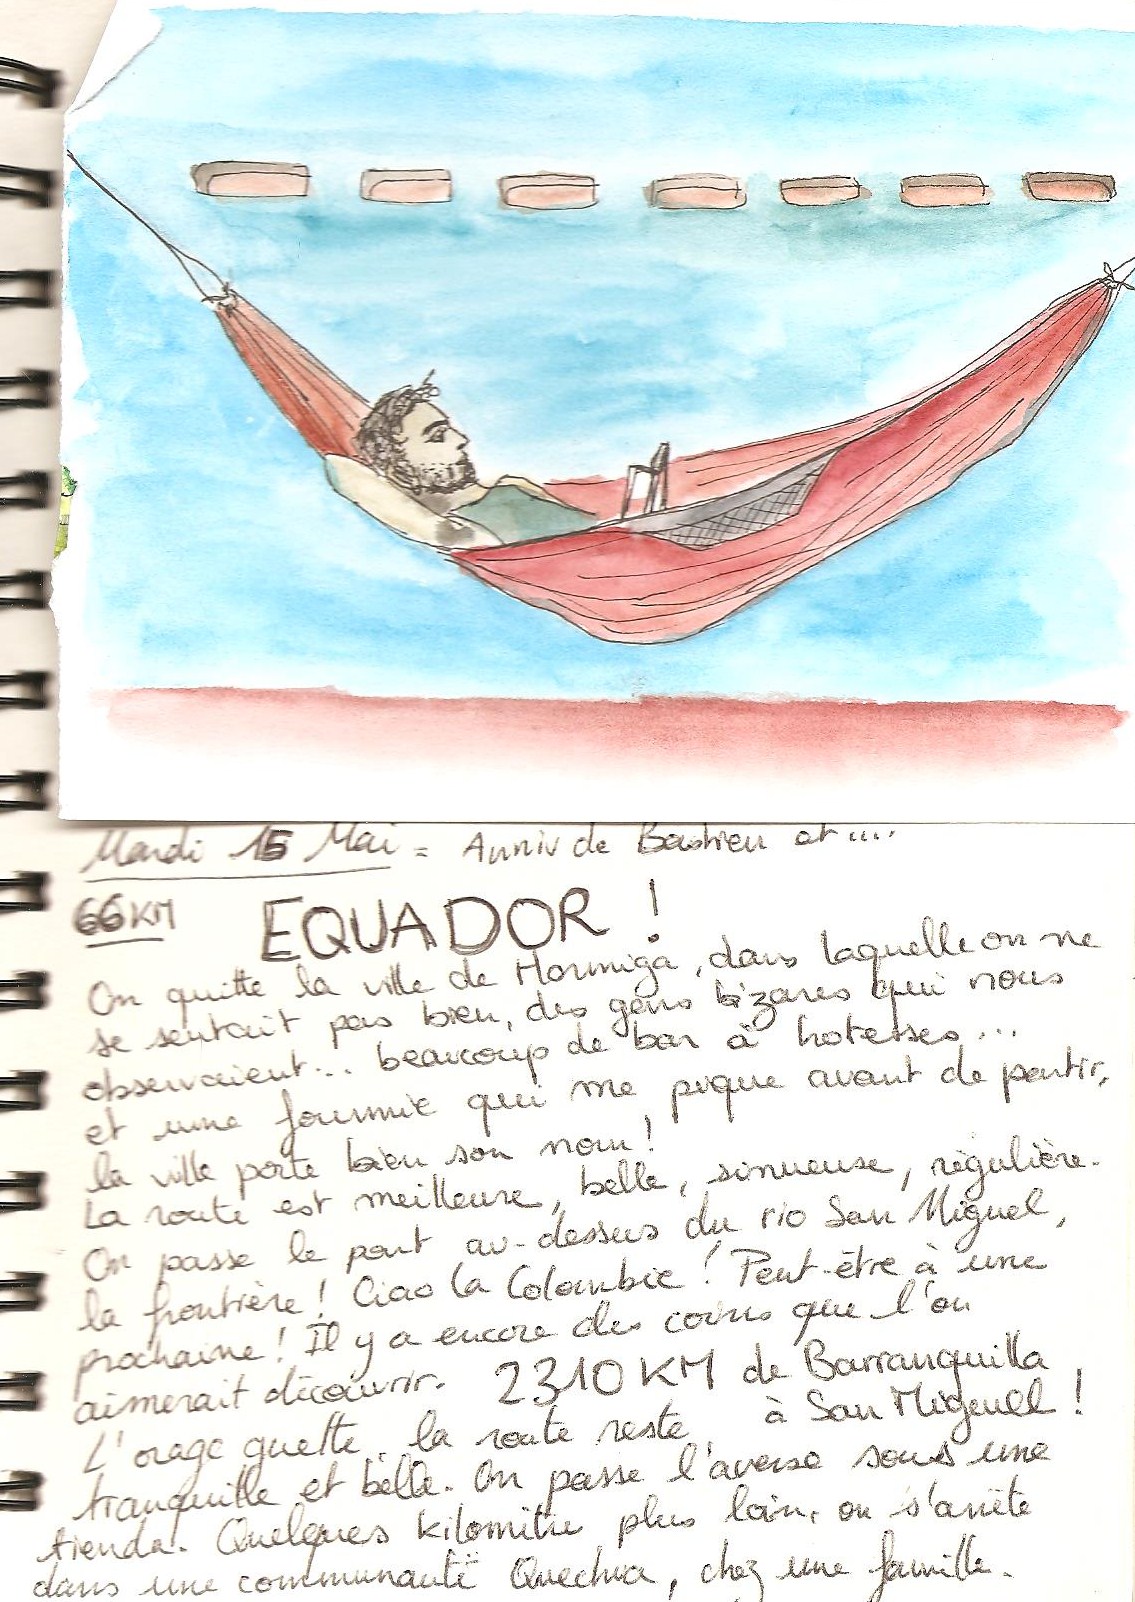 Mardi 15 Mai = Anniv de Bastien et ....
66 KM EQUADOR !
On quitte la ville de Hormiga, dans laquelle on ne
se sentait pas bien, des gens bizares qui nous
observaient... beaucoup de bar à hotesses...
et une fourmie qui me pique avant de partir,
la ville porte bien son nom !
La route est meilleure, belle, sinueuse, régulière.
On passe le pont au-dessus du rio San Miguel,
la frontière ! Ciao la Colombie ! Peut-être à une
prochaine ! Il y a encore des coins que l'on
aimerait découvrir. 2310 KM de Barranquilla
à San Miguel !
L'orage guette, la route reste
tranquille et belle. On passe l'averse sous une
tienda. Quelques kilomètre plus loin, on s'arrête
dans une communauté Quechua, chez une famille.